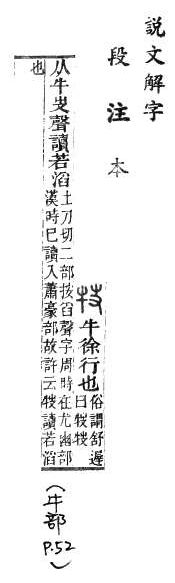 說文解字
段注本
牛徐行也
俗謂舒遲
曰
从牛𠬢聲讀若滔
土刀切二部按舀聲字周時在尤幽部
漢時已讀入蕭豪部故許云讀若滔
也
(牛部 P.52)